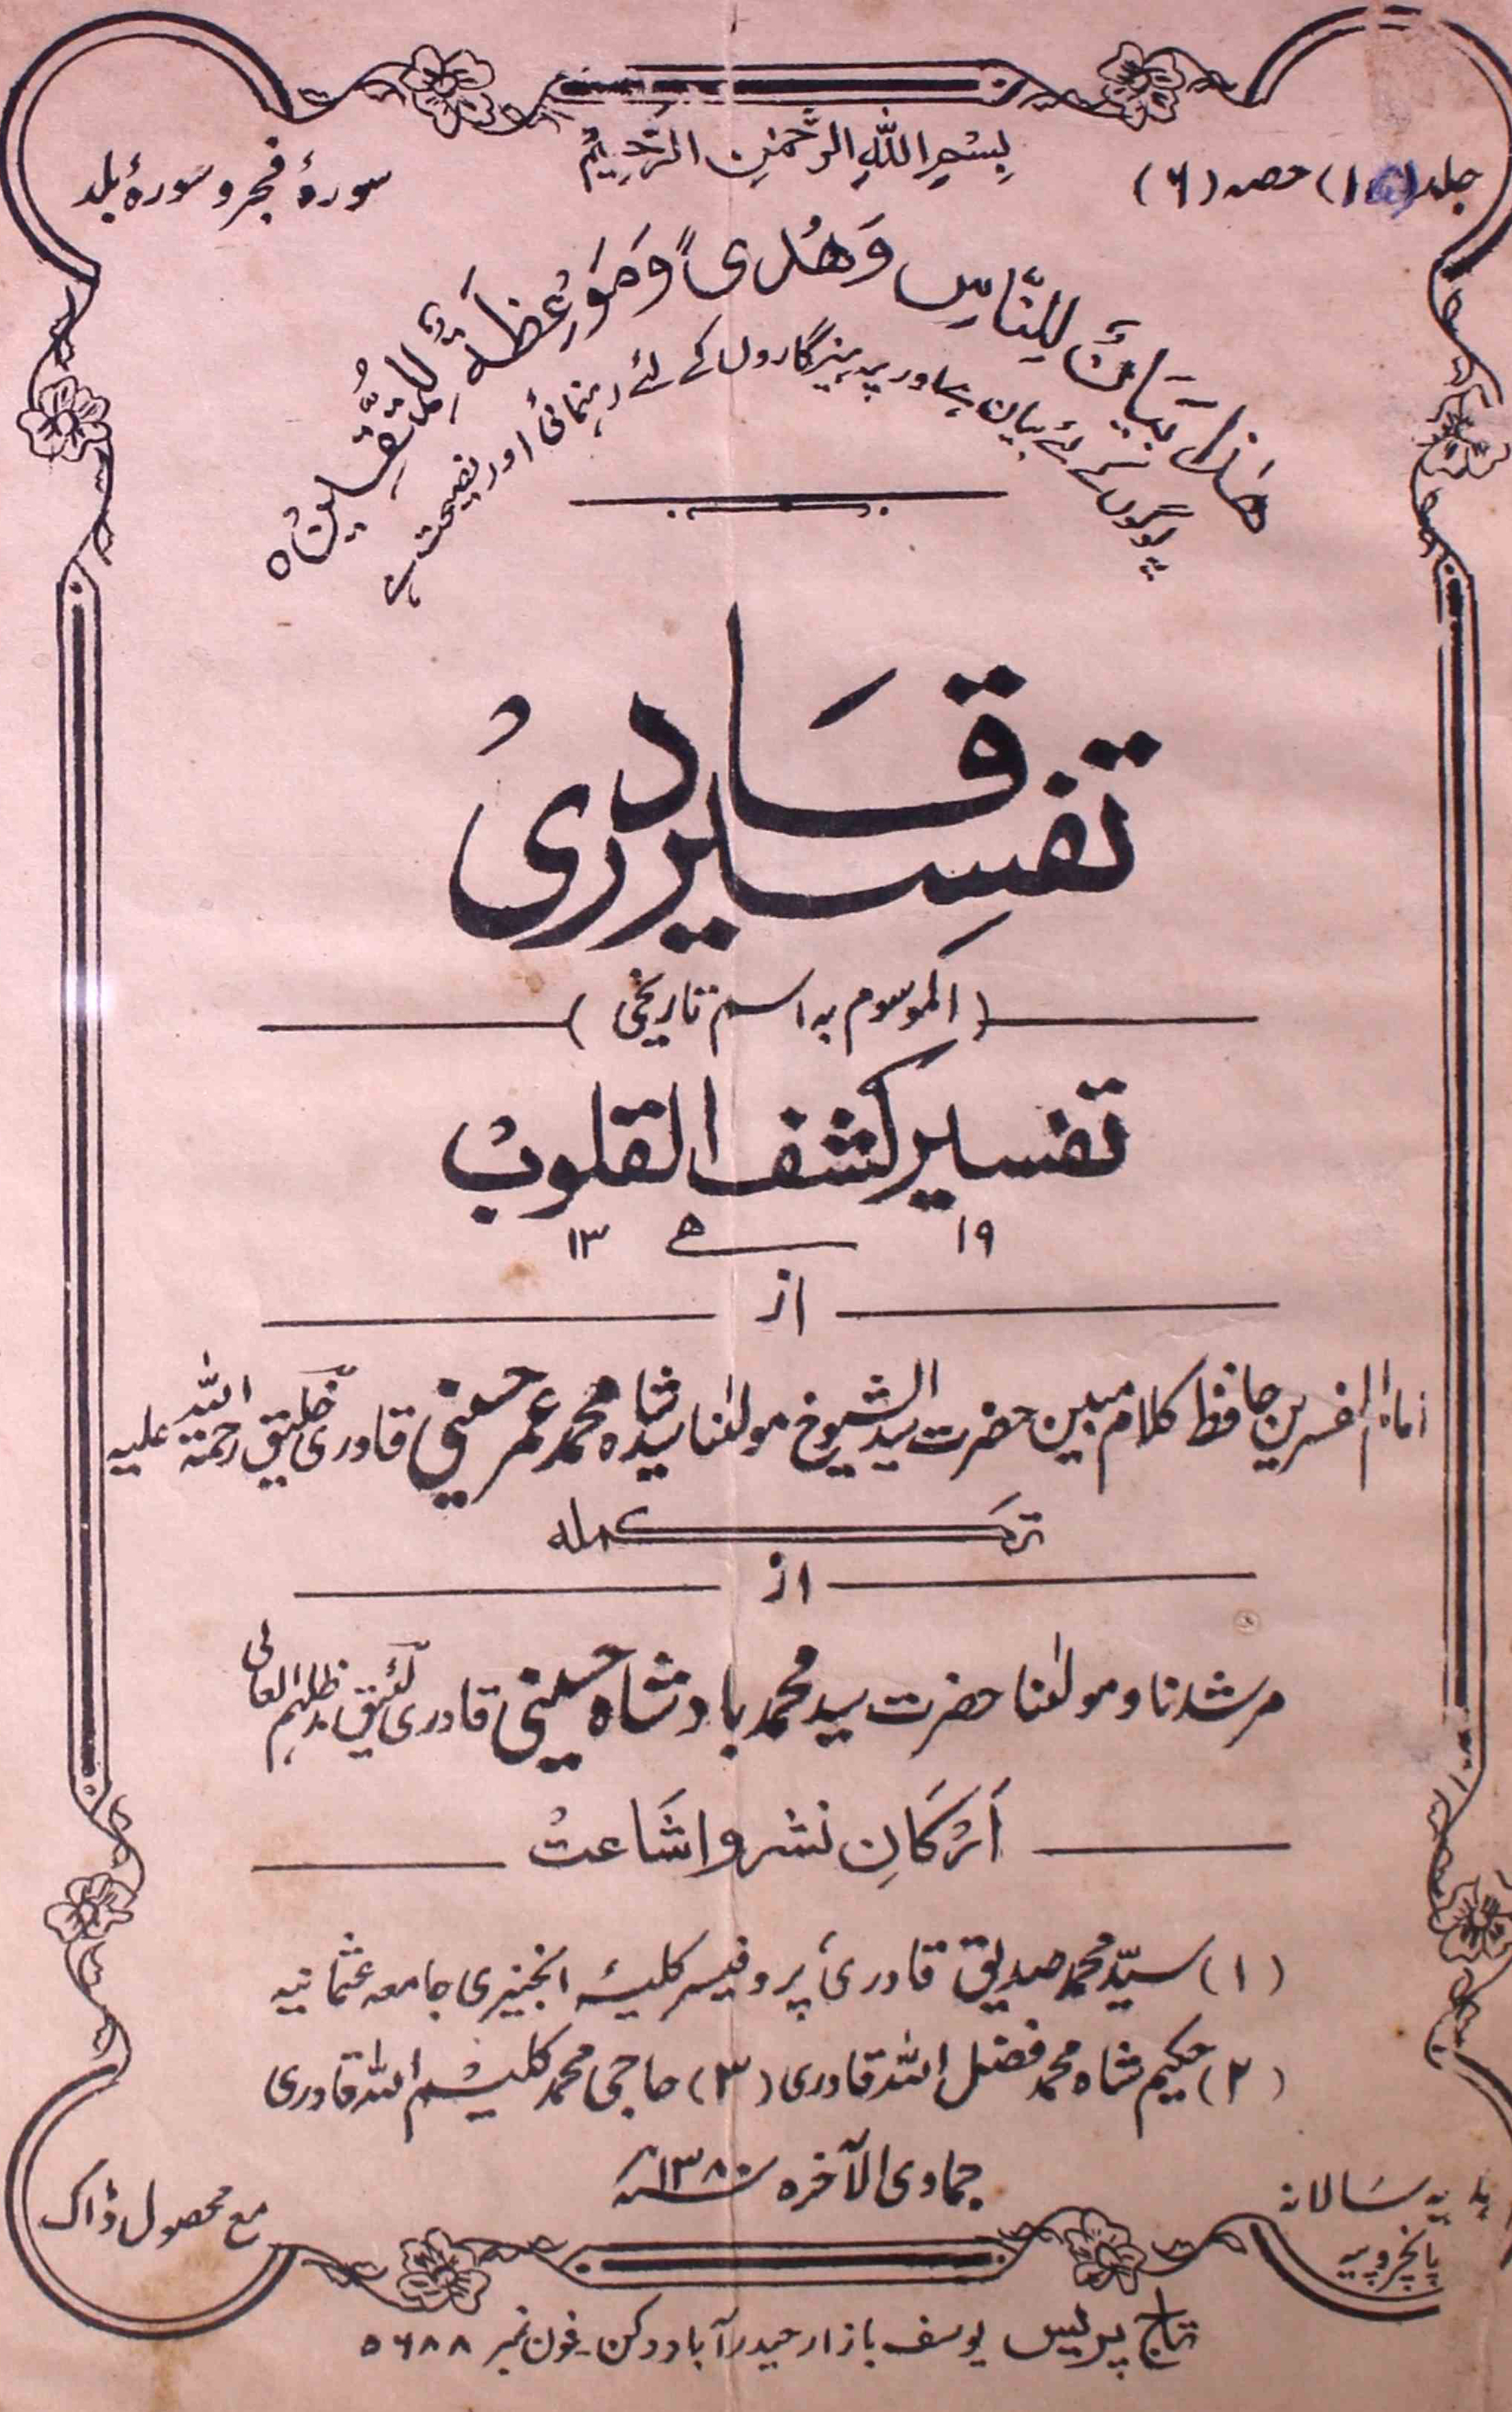 بِسْمِ اللّٰهِ الرَّحْمٰنِ الرَّحِيْمُ
جلد (۱) حصہ (۶)
سورۂ فجر و سورۂ بلد
هٰذَا بَيَانٌ لِّلنَّاسِ وَهُدًى وَّمَوْعِظَةٌ لِّلْمُتَّقِيْنَ ۵
یہ لوگوں کے لئے بیان ہے اور پرہیزگاروں کے لئے رہنمائی اور نصیحت ہے
تفسیر قادری
(الموسوم بہ اسم تاریخی)
تفسیر کشف القلوب
۱۹ ھ ۱۳
از
امام المفسرین حافظ کلام مبین حضرت سید الشیوخ مولٰنا سید شاہ محمد عمر حسینی قادری خلیق رحمۃ اللہ علیہ
تکملہ
از
مرشدنا و مولٰنا حضرت سید محمد بادشاہ حسینی قادری لئیق مدظلہم العالی
اَرْکَانِ نشر و اشَاعتْ
(۱) سیّد محمد صدیق قادری، پروفیسر کلیۂ انجنیری جامعہ عثمانیہ
(۲) حکیم شاہ محمد فضل اللہ قادری (۳) حاجی محمد کلیم اللہ قادری
جمادی الآخرہ ۱۳۸۰ھ
ہدیہ سَالانہ
پانچ روپیہ
مع محصول ڈاک
تاج پریس یوسف بازار حیدرآباد دکن۔ فون نمبر ۵۶۸۸